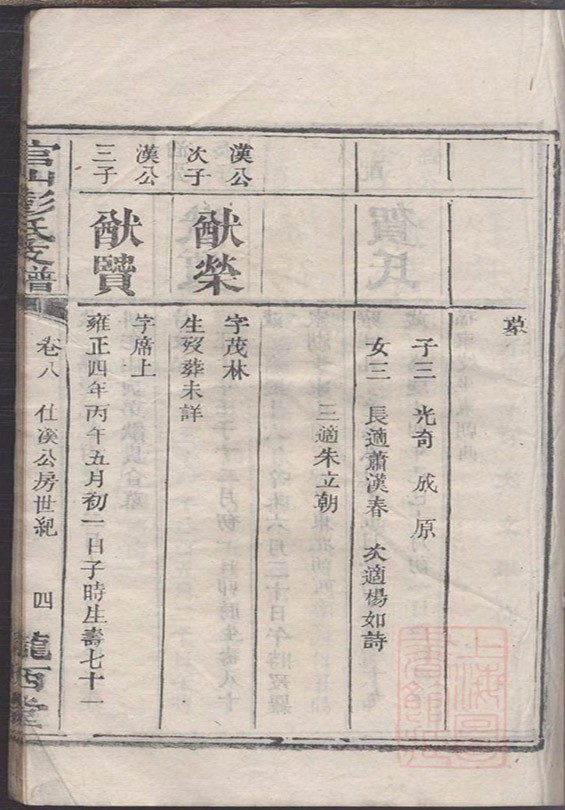 墓
子三 光奇 成 原
女三 長適蕭漢春 次適楊如詩
三適朱立朝
漢公次子
猷榮
字茂林
生歿葬未詳
漢公三子
猷贒
字席上
雍正四年丙午五月初一日子時生壽七十一
官山彭氏支譜
卷八 仕溪公房世紀 四